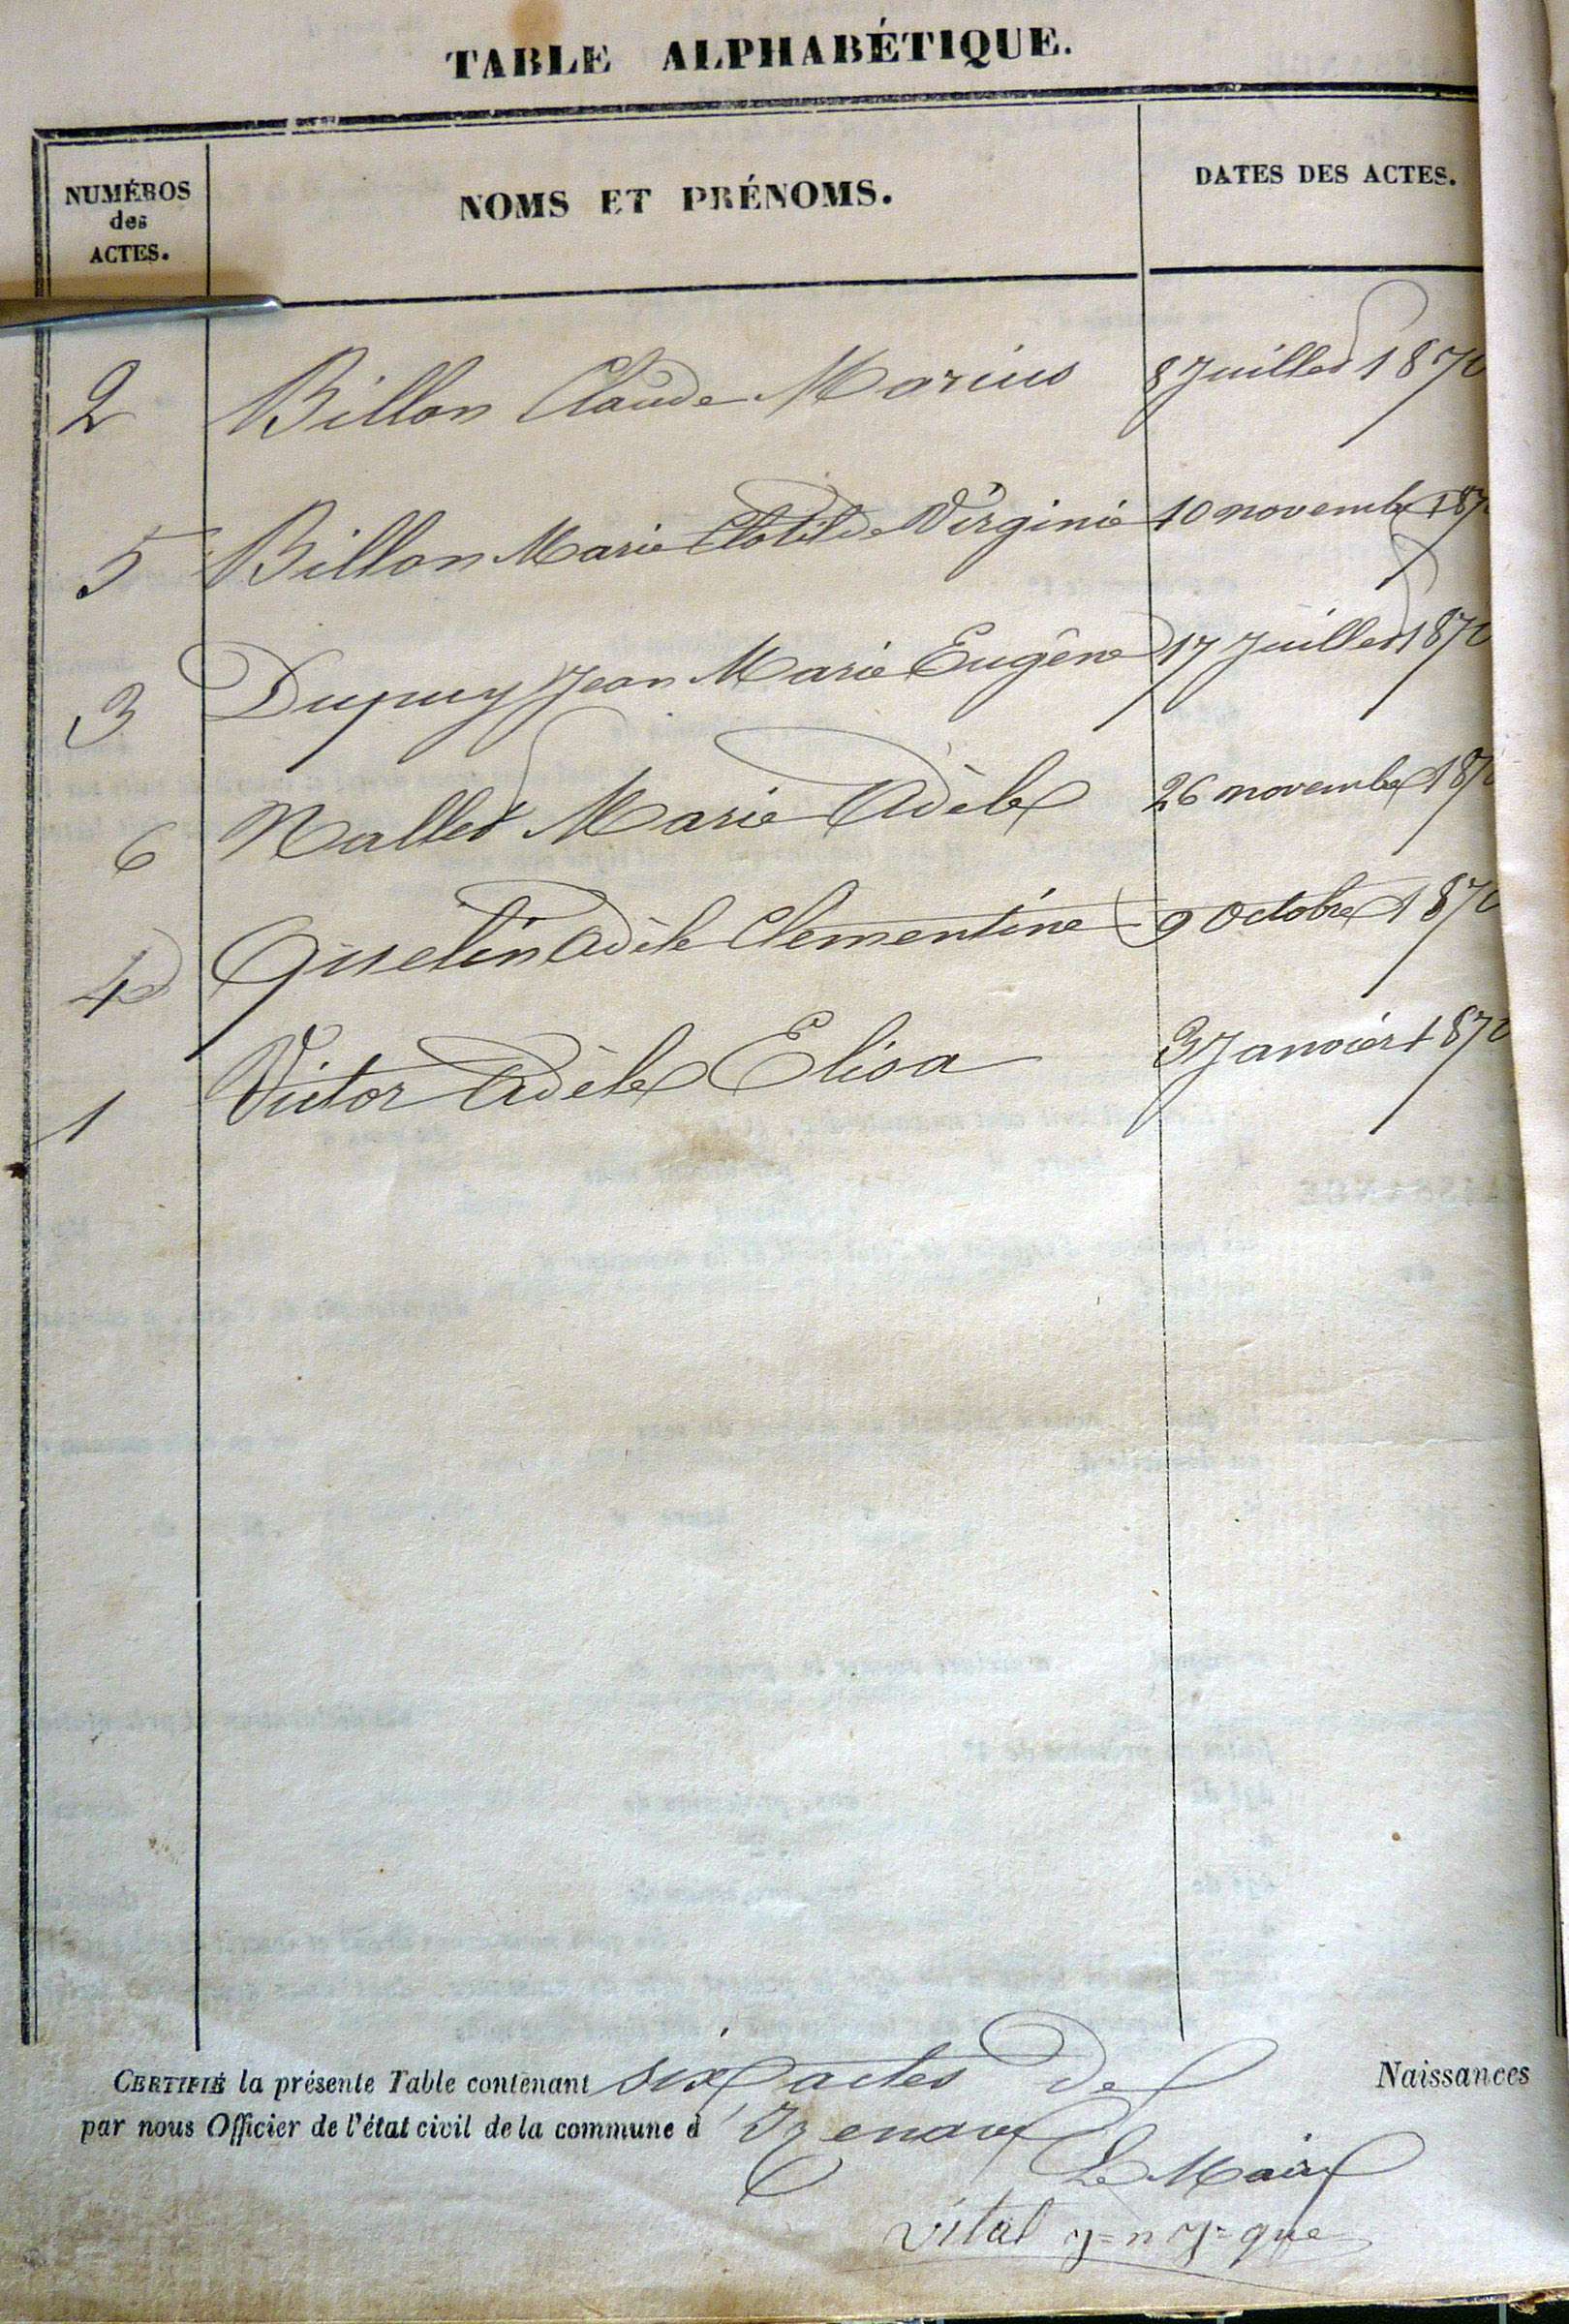 TABLE ALPHABÉTIQUE.
NUMÉROS des ACTES.
NOMS ET PRÉNOMS.
DATES DES ACTES.
2 Billon Claude Marius 8 Juillet 1870
5 Billon Marie Clotilde Virginie 10 novembre 187
3 Dupuy Jean Marie Eugène 17 Juillet 1870
6 Nallet Marie Adèle 26 novembre 1870
4 Quelin Adèle Clementine 9 Octobre 1870
1 Victor Adèle Elisa 3 Janvier 1870
CERTIFIÉ la présente Table contenant six actes de Naissances
par nous Officier de l'état civil de la commune d'Izenave
Le Maire
Vital